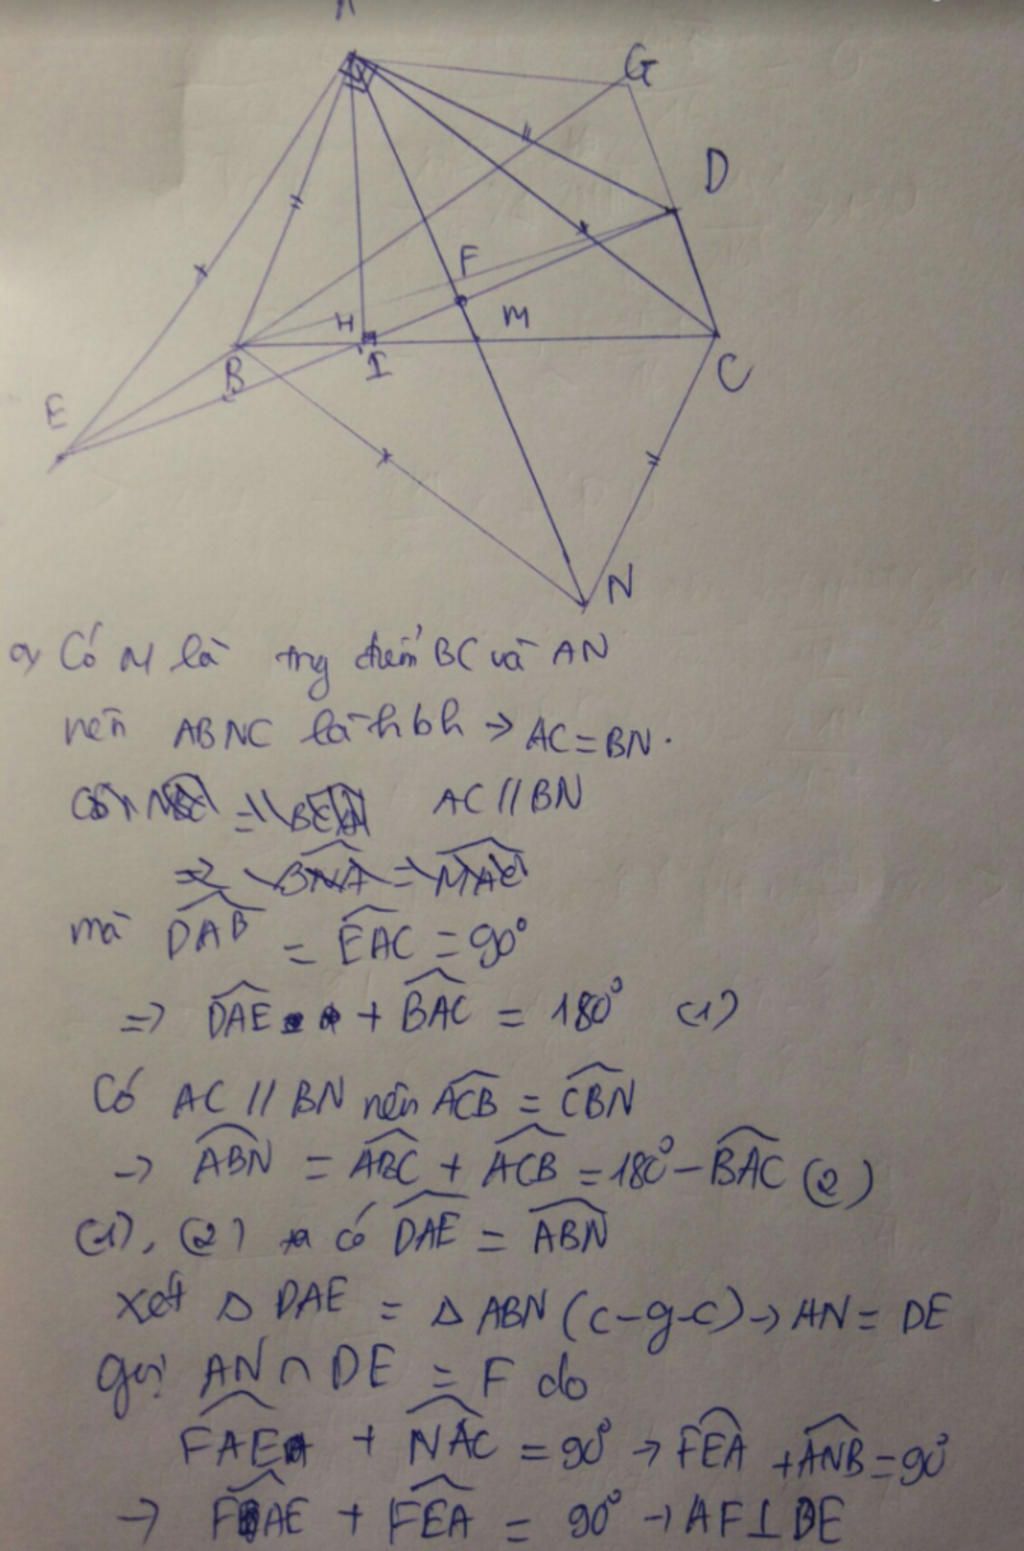 A
G
D
F
H
M
B
I
C
E
N
a, Có M là trg điểm BC và AN
nên ABNC là hbh → AC = BN.
AC // BN
mà DAB = EAC = 90°
=> DAE + BAC = 180° (1)
Có AC // BN nên ACB = CBN
→ ABN = ABC + ACB = 180° - BAC (2)
(1), (2) ta có DAE = ABN
xét △ DAE = △ ABN (c-g-c) → AN = DE
gọi AN ∩ DE = F do
FAE + NAC = 90° → FEA + ANB = 90°
→ FAE + FEA = 90° → AF ⊥ DE